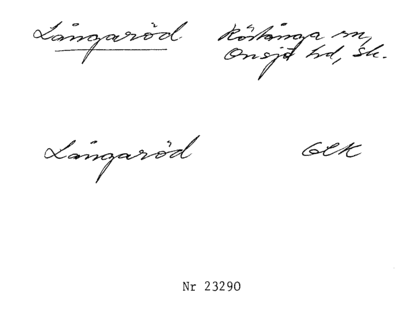 Långaröd Röstånga sn,
Onsjö hd, Sk.
Långaröd GEK
Nr 23290